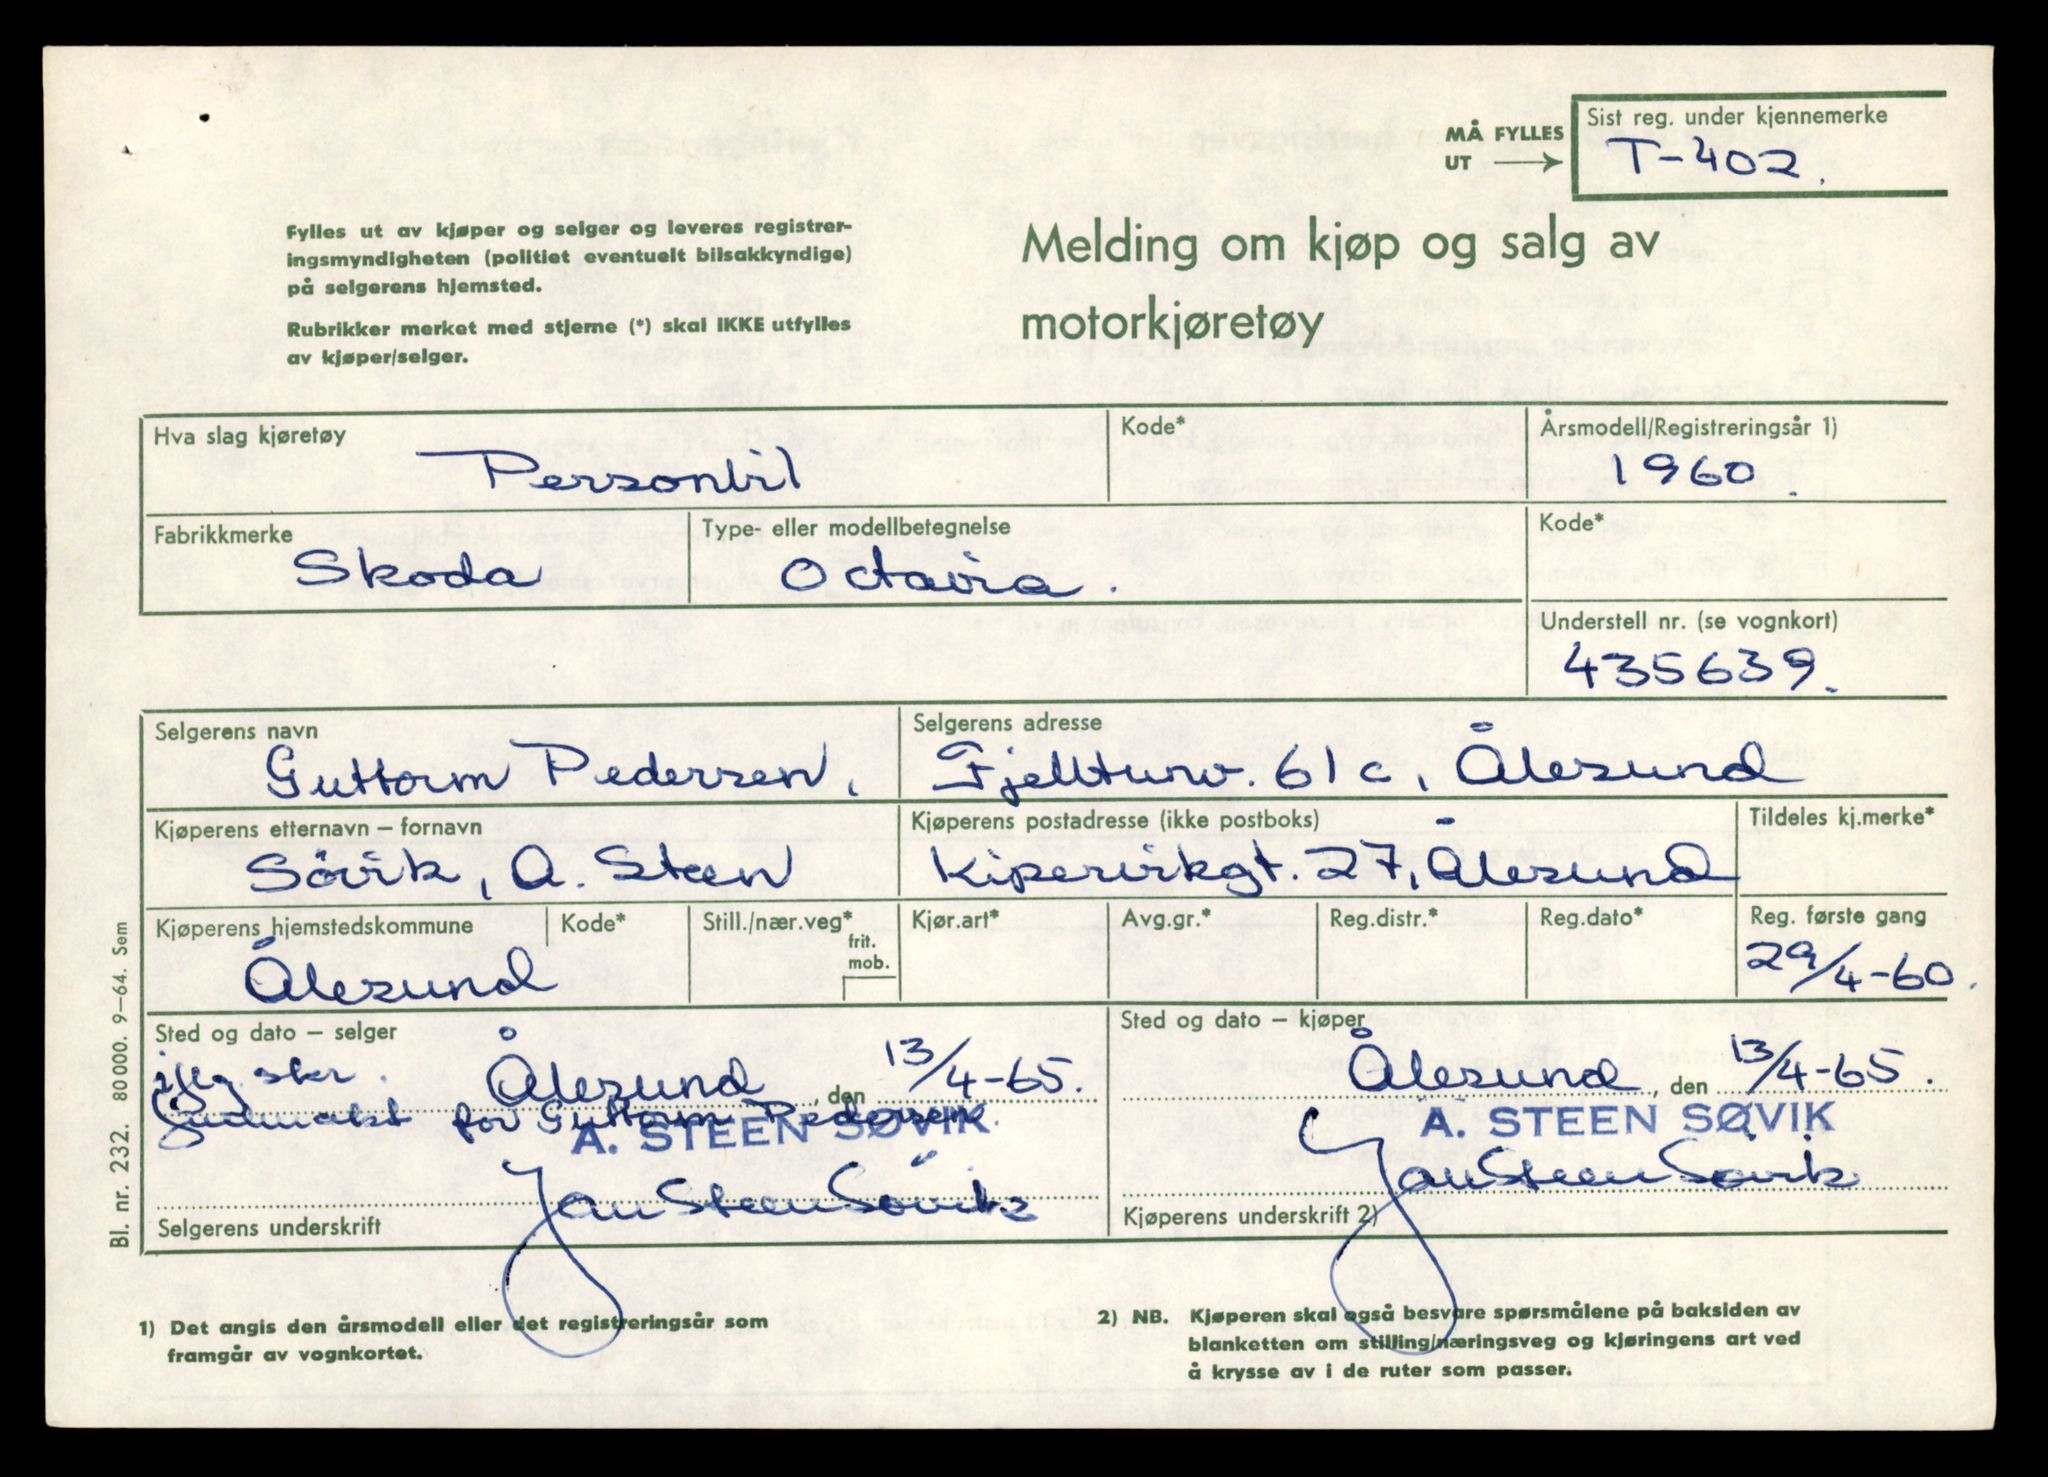 MÅ FYLLES
UT
Sist reg. under kjennemerke
T-402.
Fylles ut av kjøper og selger og leveres registrer-
ingsmyndigheten (politiet eventuelt bilsakkyndige)
på selgerens hjemsted.
Rubrikker merket med stjerne (*) skal IKKE utfylles
av kjøper/selger.
Melding om kjøp og salg av
motorkjøretøy
Hva slag kjøretøy
Personbil
Kode*
Årsmodell/Registreringsår 1)
1960.
Fabrikkmerke
Skoda
Type- eller modellbetegnelse
Octavia.
Kode*
Understell nr. (se vognkort)
435639.
Selgerens navn
Guttorm Pedersen,
Selgerens adresse
Fjellturv. 61c, Ålesund
Kjøperens etternavn – fornavn
Sövik, A. Steen
Kjøperens postadresse (ikke postboks)
Kipervikgt. 27, Ålesund
Tildeles kj.merke*
Kjøperens hjemstedskommune
Ålesund
Kode*
Still./nær.veg*
frit.
mob.
Kjør.art*
Avg.gr.*
Reg.distr.*
Reg.dato*
Reg. første gang
29/4-60.
Sted og dato – selger
iflg. skr. Ålesund, den 13/4-65.
for Guttorm Pedersen.
A. STEEN SØVIK
Jan Steen Søvik
Selgerens underskrift
Sted og dato – kjøper
Ålesund, den 13/4-65.
A. STEEN SØVIK
Jan Steen Søvik
Kjøperens underskrift 2)
Bl. nr. 232. 80 000. 9–64. Sem
1) Det angis den årsmodell eller det registreringsår som
framgår av vognkortet.
2) NB. Kjøperen skal også besvare spørsmålene på baksiden av
blanketten om stilling/næringsveg og kjøringens art ved
å krysse av i de ruter som passer.